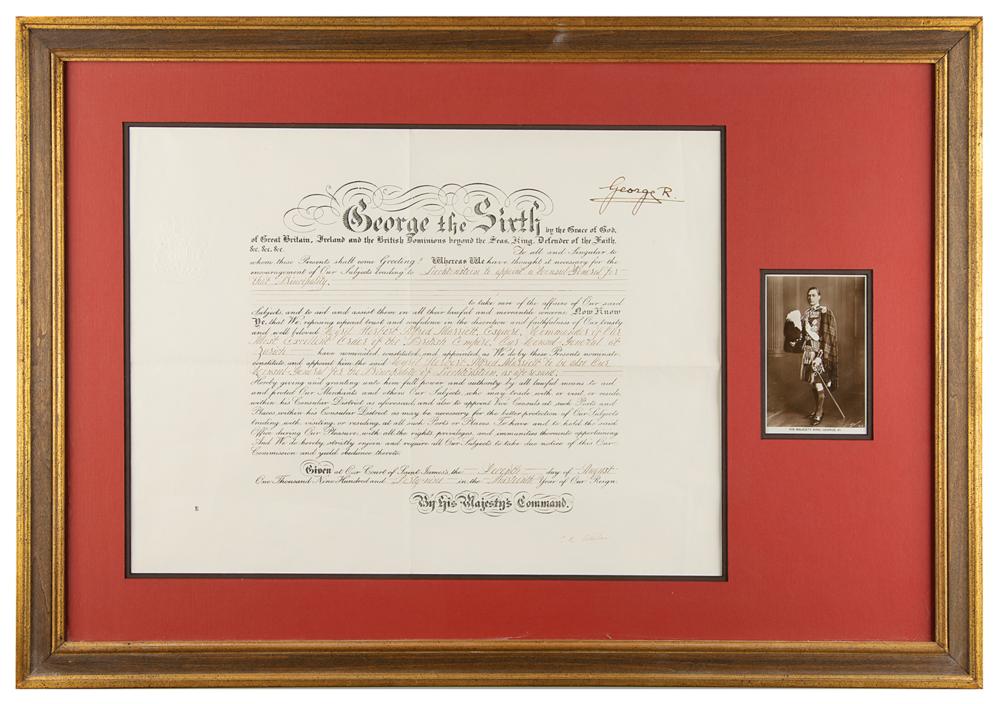 George R.
George the Sixth by the Grace of God,
of Great Britain, Ireland and the British Dominions beyond the Seas, King, Defender of the Faith,
&c. &c. &c. To all and Singular to
whom these Presents shall come Greeting! Whereas We have thought it necessary for the
encouragement of Our Subjects trading to Liechtenstein to appoint a Consul-General for
that Principality,
to take care of the affairs of Our said
Subjects, and to aid and assist them in all their lawful and mercantile concerns: Now Know
Ye, that We, reposing especial trust and confidence in the discretion and faithfulness of Our trusty
and well beloved Cyril Herbert Alfred Marriott, Esquire, Commander of Our
Most Excellent Order of the British Empire, Our Consul-General at
Zurich have nominated, constituted, and appointed, as We do by these Presents nominate,
constitute, and appoint him the said Cyril Herbert Alfred Marriott to be also Our
Consul-General for the Principality of Liechtenstein, as aforesaid.
Hereby giving and granting unto him full power and authority, by all lawful means to aid
and protect Our Merchants and others Our Subjects, who may trade with, or visit, or reside
within his Consular District as aforesaid, and also to appoint Vice Consuls at such Ports and
Places within his Consular District as may be necessary for the better protection of Our Subjects
trading with, visiting, or residing, at all such Ports or Places. To have and to hold the said
Office during Our Pleasure, with all the rights, privileges, and immunities thereunto appertaining.
And We do hereby strictly enjoin and require all Our Subjects to take due notice of this Our
Commission and yield obedience thereto.
Given at Our Court of Saint James's, the Seventh day of August
One Thousand Nine Hundred and Forty-nine in the Thirteenth Year of Our Reign.
By His Majesty's Command.
HIS MAJESTY KING GEORGE VI.